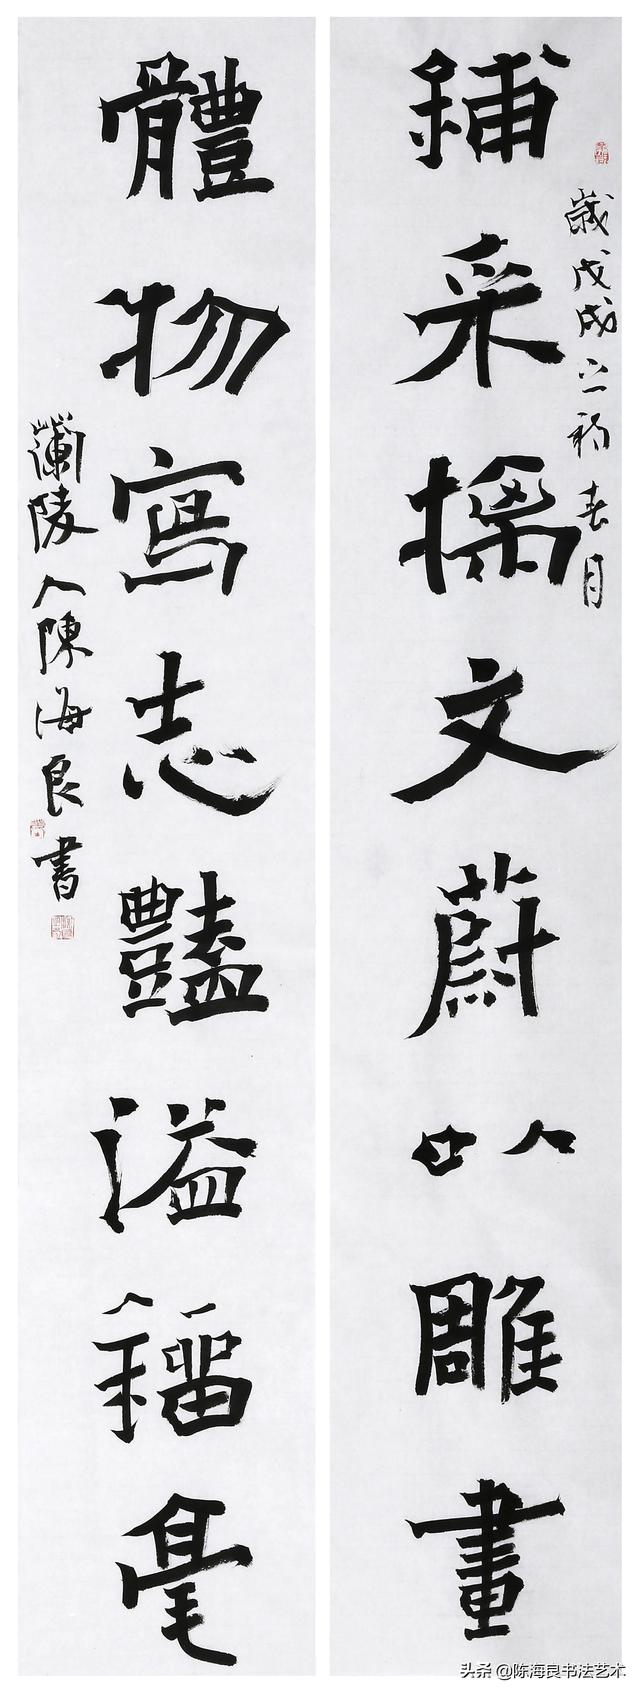 歲戊戌之初春月
鋪采摛文蔚以雕畫
體物寫志豔溢錙毫
蘭陵人陳海良書
头条 @陈海良书法艺术